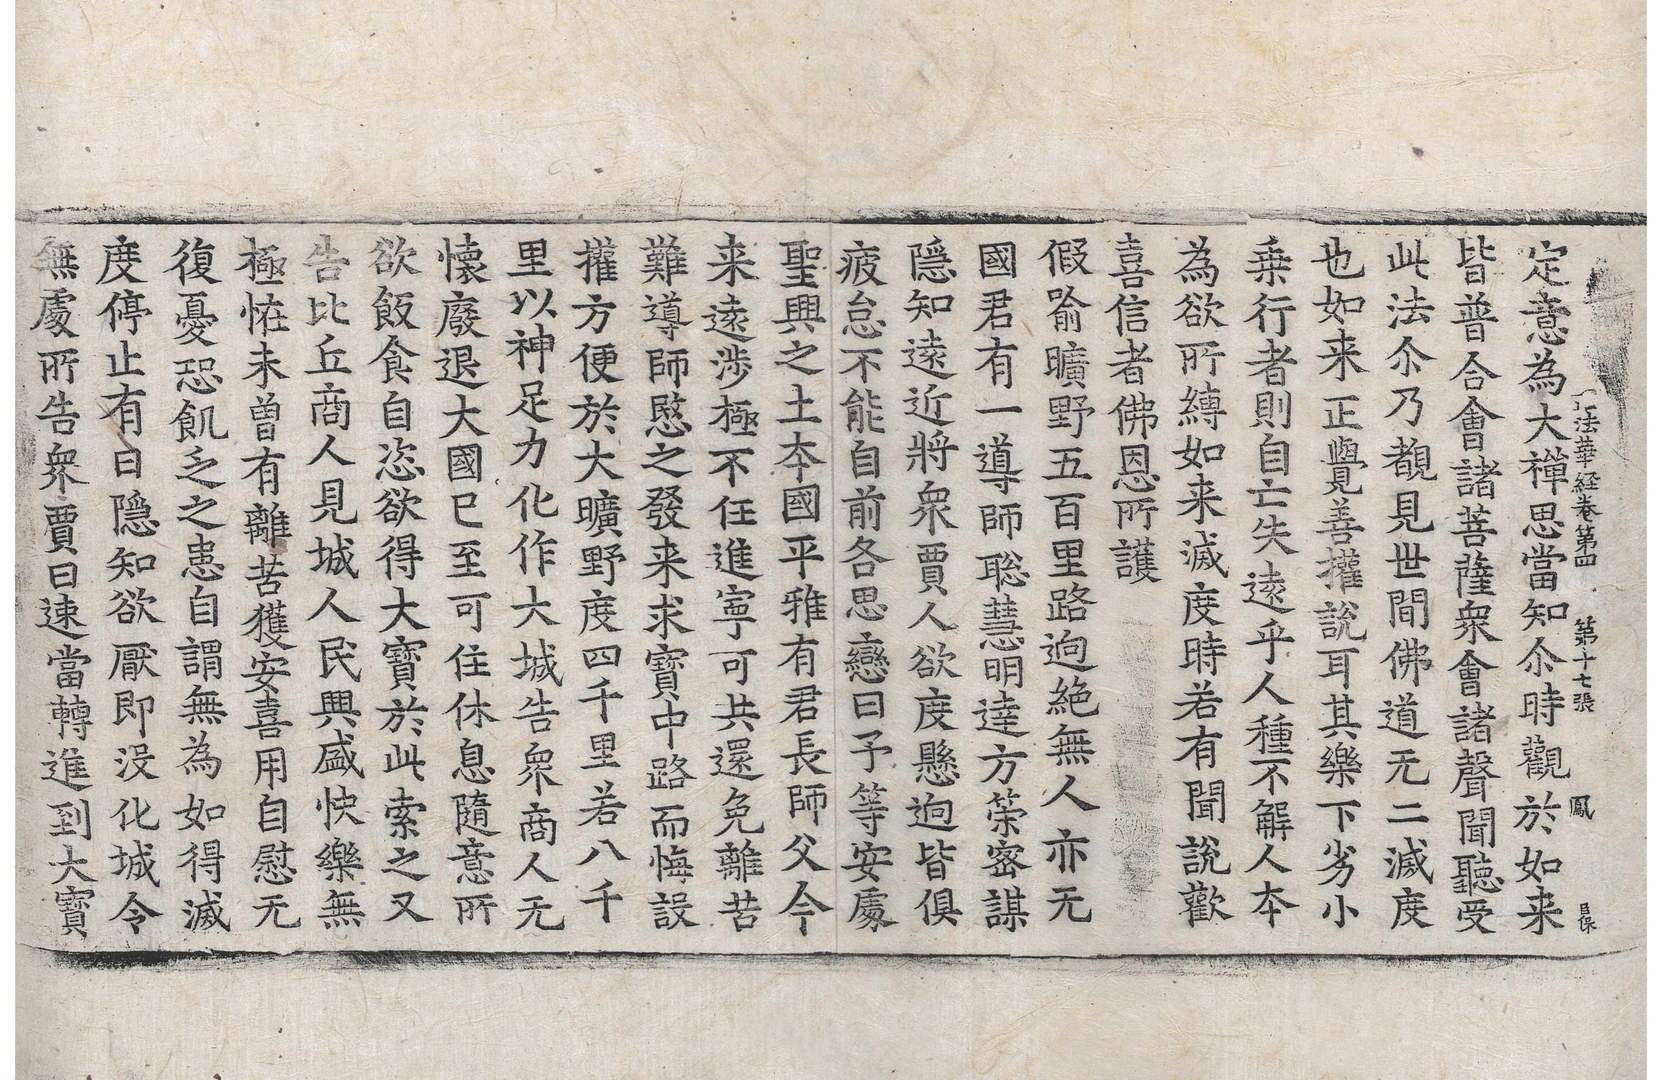 法華経卷第四 第十七張 鳳
定意為大禅思當知尒時觀於如来
皆普合會諸菩薩衆會諸聲聞聽受
此法尒乃覩見世間佛道无二滅度
也如来正覺善權說耳其樂下劣小
乗行者則自亡失遠乎人種不解人本
為欲所縛如来滅度時若有聞說歡
喜信者佛恩所護
假喻曠野五百里路逈絶無人亦无
國君有一導師聡慧明達方筞密謀
隱知遠近將衆賈人欲度懸逈皆俱
疲怠不能自前各思戀曰予等安處
聖興之土本國平雅有君長師父今
来遠涉極不任進寧可共還免離苦
難導師愍之發来求寶中路而悔設
權方便於大曠野度四千里若八千
里以神足力化作大城告衆商人无
懷廢退大國已至可住休息隨意所
欲飯食自恣欲得大寶於此索之又
告比丘商人見城人民興盛快樂無
極恠未曾有離苦獲安喜用自慰无
復憂恐飢乏之患自謂無為如得滅
度停止有日隱知欲厭即没化城令
無處所告衆賈曰速當轉進到大寶